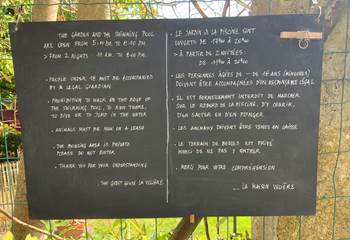 THE GARDEN AND THE SWIMMING POOL
ARE OPEN FROM 5:00 PM TO 8:00 PM
> FROM 2 NIGHTS : 11 AM. TO 8:00 PM.
- PEOPLE UNDER 18 MUST BE ACCOMPANIED
BY A LEGAL GUARDIAN
- PROHIBITION TO WALK ON THE EDGE OF
THE SWIMMING POOL, TO RUN THERE,
TO DIVE OR TO JUMP IN THE WATER
- ANIMALS MUST BE KEPT ON A LEASH
- THE BOWLING AREA IS PRIVATE
PLEASE DO NOT ENTER.
- THANK YOU FOR YOUR UNDERSTANDING
- LE JARDIN & LA PISCINE SONT
OUVERTS DE 17H00 À 20H00
> À PARTIR DE 2 NUITÉES :
DE 11H00 À 20H00
- LES PERSONNES ÂGÉES DE - DE 18 ANS (MINEURES)
DOIVENT ÊTRE ACCOMPAGNÉES D'UN RESPONSABLE LÉGAL
- IL EST FORMELLEMENT INTERDIT DE MARCHER
SUR LE REBORD DE LA PISCINE, D'Y COURIR,
D'EN SAUTER OU D'EN PLONGER.
- LES ANIMAUX DOIVENT ÊTRE TENUS EN LAISSE
- LE TERRAIN DE BOULES EST PRIVÉ
MERCI DE NE PAS Y ENTRER.
- MERCI POUR VOTRE COMPRÉHENSION